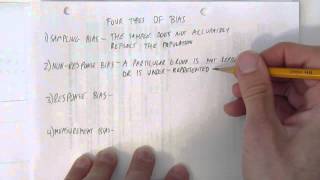 FOUR TYPES OF BIAS
1) SAMPLING BIAS – THE SAMPLE DOES NOT ACCURATELY
REFLECT THE POPULATION
2) NON-RESPONSE BIAS – A PARTICULAR GROUP IS NOT
OR IS UNDER-REPRESENTED
3) RESPONSE BIAS –
4) MEASUREMENT BIAS –